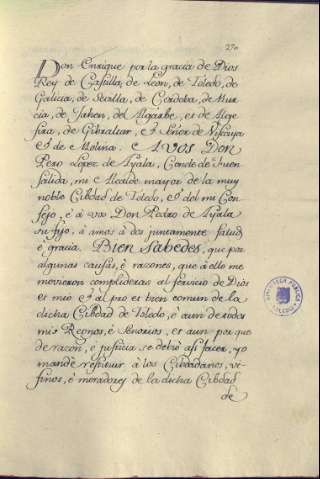 270
Don Enrique por la gracia de Dios
Rey de Castilla, de Leon, de Toledo, de
Galicia, de Sevilla, de Cordoba, de Mur
cia, de Jahen, del Algarbe, et de Alge
sira, de Gibraltar, é Señor de Viscaya
é de Molina. A VOS DON
Pero Lopez de Ayala, Conde de Fuen
salida, mi Alcalde mayor de la muy
noble Cibdad de Toledo, é del mi Con
sejo, é á vos Don Pedro de Ayala
su fijo, á amos á dos juntamente salud
é gracia. Bien Sabedes, que por
algunas causas, é razones, que á ello me
movieron complideras al servicio de Dios
et mio é al pro et bien comun de la
dicha Cibdad de Toledo, é aun de todos
mis Regnos, é Señorios, et aun por que
de razon, é justicia se debió asi facer, yo
mandé restituir á los Cibdadanos, ve
sinos, é moradores de la dicha Cibdad
de
BIBLIOTECA PUBLICA
TOLEDO